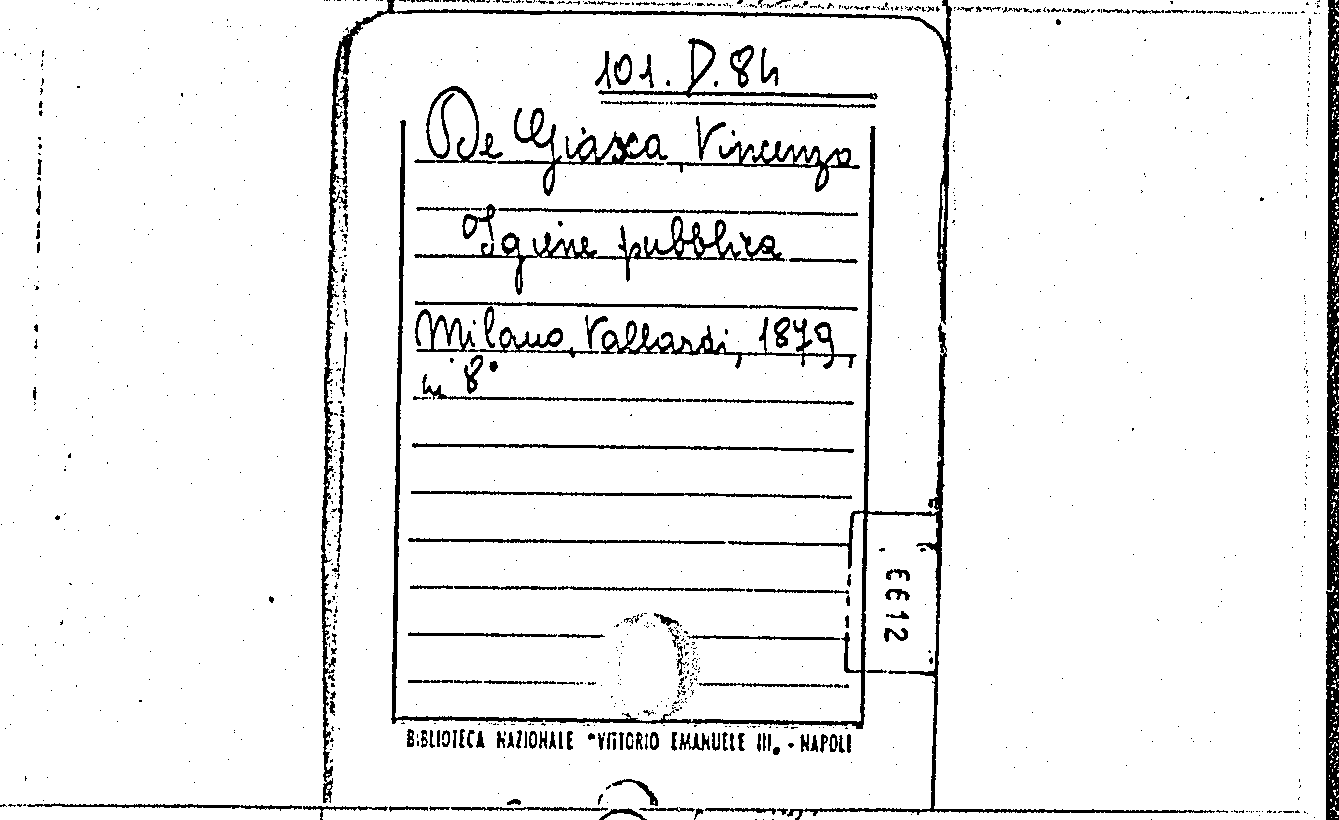 101. D. 84
De Giaxa, Vincenzo
Igiene pubblica
Milano, Vallardi, 1879,
in 8°
BIBLIOTECA NAZIONALE "VITTORIO EMANUELE III„ - NAPOLI